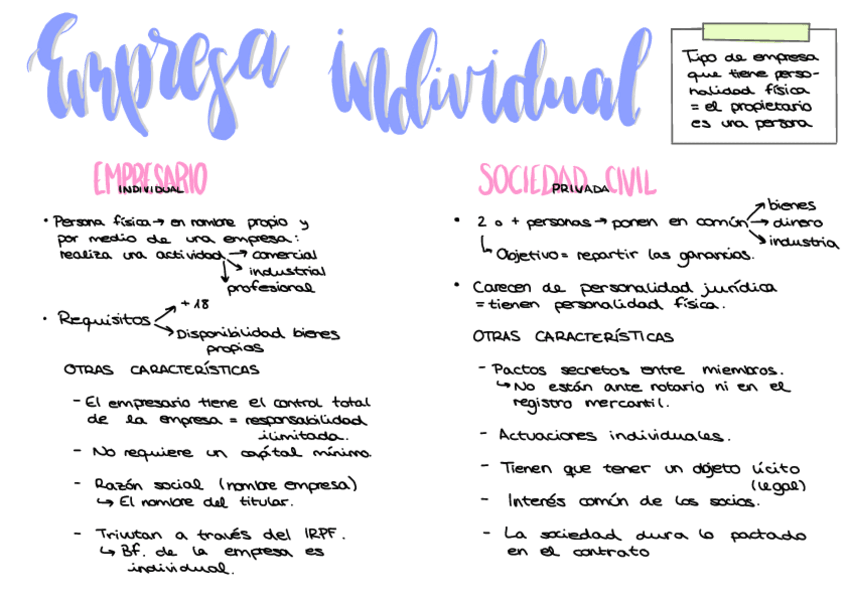 Empresa individual
Tipo de empresa
que tiene perso-
nalidad física
= el propietario
es una persona
EMPRESARIO
INDIVIDUAL
• Persona física → en nombre propio y
por medio de una empresa:
realiza una actividad → comercial
→ industrial
→ profesional
• Requisitos → +18
→ Disponibilidad bienes
propios
OTRAS CARACTERÍSTICAS
- El empresario tiene el control total
de la empresa = responsabilidad
ilimitada.
- No requiere un capital mínimo.
- Razón social (nombre empresa)
↳ El nombre del titular.
- Trivutan a través del IRPF.
↳ Bf. de la empresa es
individual.
SOCIEDAD CIVIL
PRIVADA
• 2 o + personas → ponen en común → bienes
→ dinero
→ industria
↳ Objetivo = repartir las ganancias.
• Carecen de personalidad jurídica
= tienen personalidad física.
OTRAS CARACTERÍSTICAS
- Pactos secretos entre miembros.
↳ No están ante notario ni en el
registro mercantil.
- Actuaciones individuales.
- Tienen que tener un objeto lícito
(legal)
- Interés común de los socios.
- La sociedad dura lo pactado
en el contrato